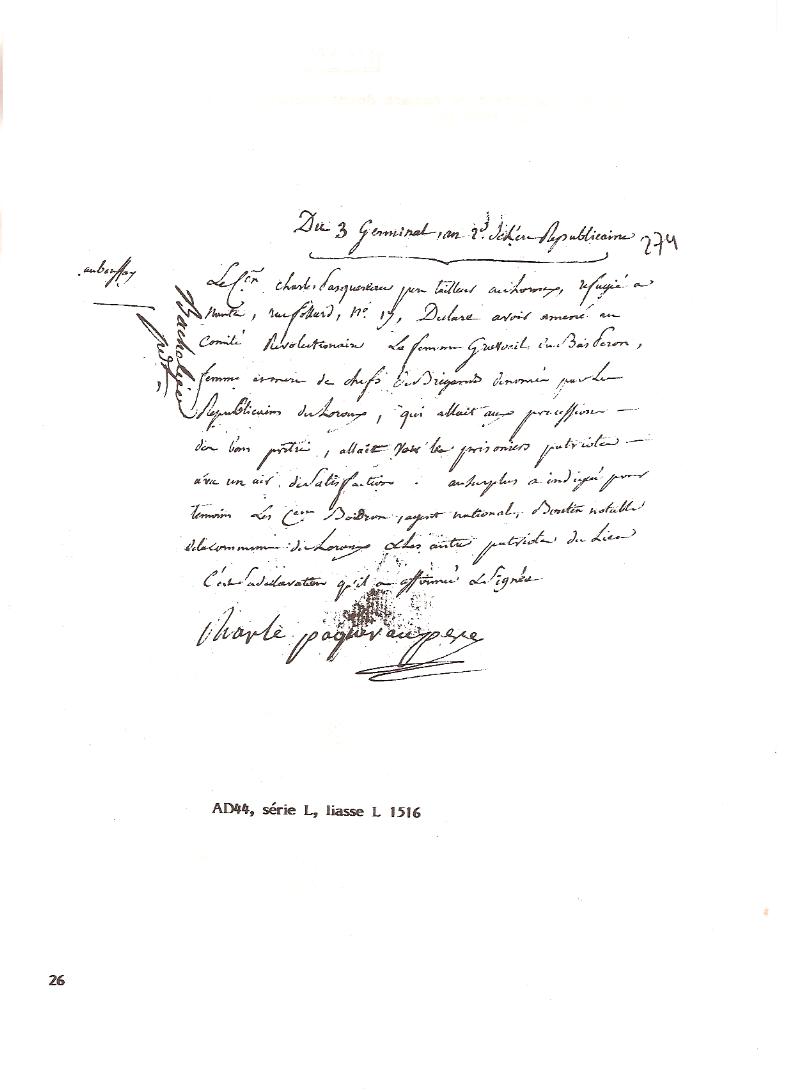 Du 3 Germinal, an 2.d de l'ere Republicaine 274
au bouffay
Bachelier
prdt
Le Cen Charles Pasquereau pere tailleur au Loroux, refugié a
Nante, rue Follard, No. 19, Declare avoir amené au
Comité Revolutionaire La femme du Bas Peron,
femme et mere de chefs de Brigands denomée par les
Republicains du Loroux, qui allait aux procession
des bons pretre, allait voir les prisoniers patriotes
avec un air de satisfaction. au surplus a indiqué pour
temoins Les Cens Boidron, agent national, Boutin notable
de la commune du Loroux & Les autre patriotes du Lieu
C'est sa declaration qu'il a affirmé & signée
Charle paquerau pere
AD44, série L, liasse L 1516
26